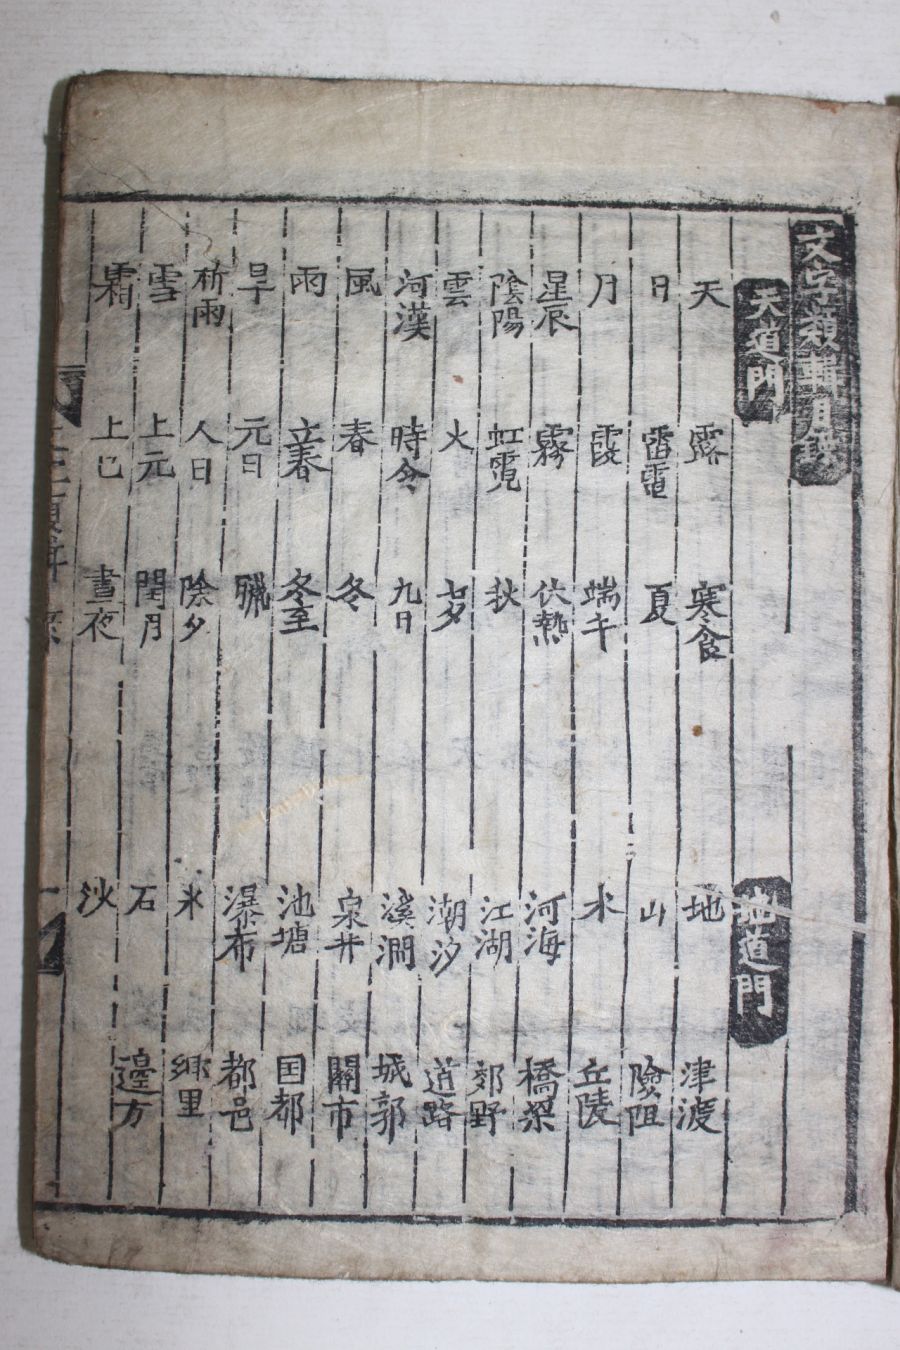 文字類輯目錄
天道門 地道門
天 露 寒食 地 津渡
日 雷電 夏 山 險阻
月 霞 端午 水 丘陵
星辰 霧 伏熱 河海 橋梁
陰陽 虹霓 秋 江湖 郊野
雲 火 七夕 潮汐 道路
河漢 時令 九日 溪澗 城郭
風 春 冬 泉井 關市
雨 立春 冬至 池塘 国都
旱 元日 臘 瀑布 都邑
祈雨 人日 除夕 氷 鄉里
雪 上元 閏月 石 邊方
霜 上巳 晝夜 沙